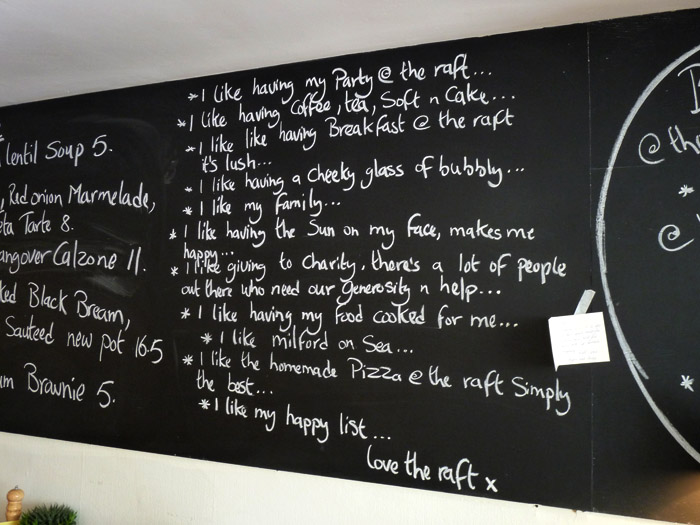 lentil Soup 5.
, Red onion Marmelade,
eta Tarte 8.
angover Calzone 11.
ked Black Bream,
Sauteed new pot 16.5
Brownie 5.
* I like having my Party @ the raft...
* I like having Coffee, tea, Soft n Cake...
* I like like having Breakfast @ the raft
it's lush...
* I like having a cheeky glass of bubbly...
* I like my family...
* I like having the Sun on my face, makes me
happy...
* I like giving to Charity, there's a lot of people
out there who need our generosity n help...
* I like having my food cooked for me...
* I like milford on Sea...
* I like the homemade Pizza @ the raft Simply
the best...
* I like my happy list...
love the raft x
@ the
*
@
*